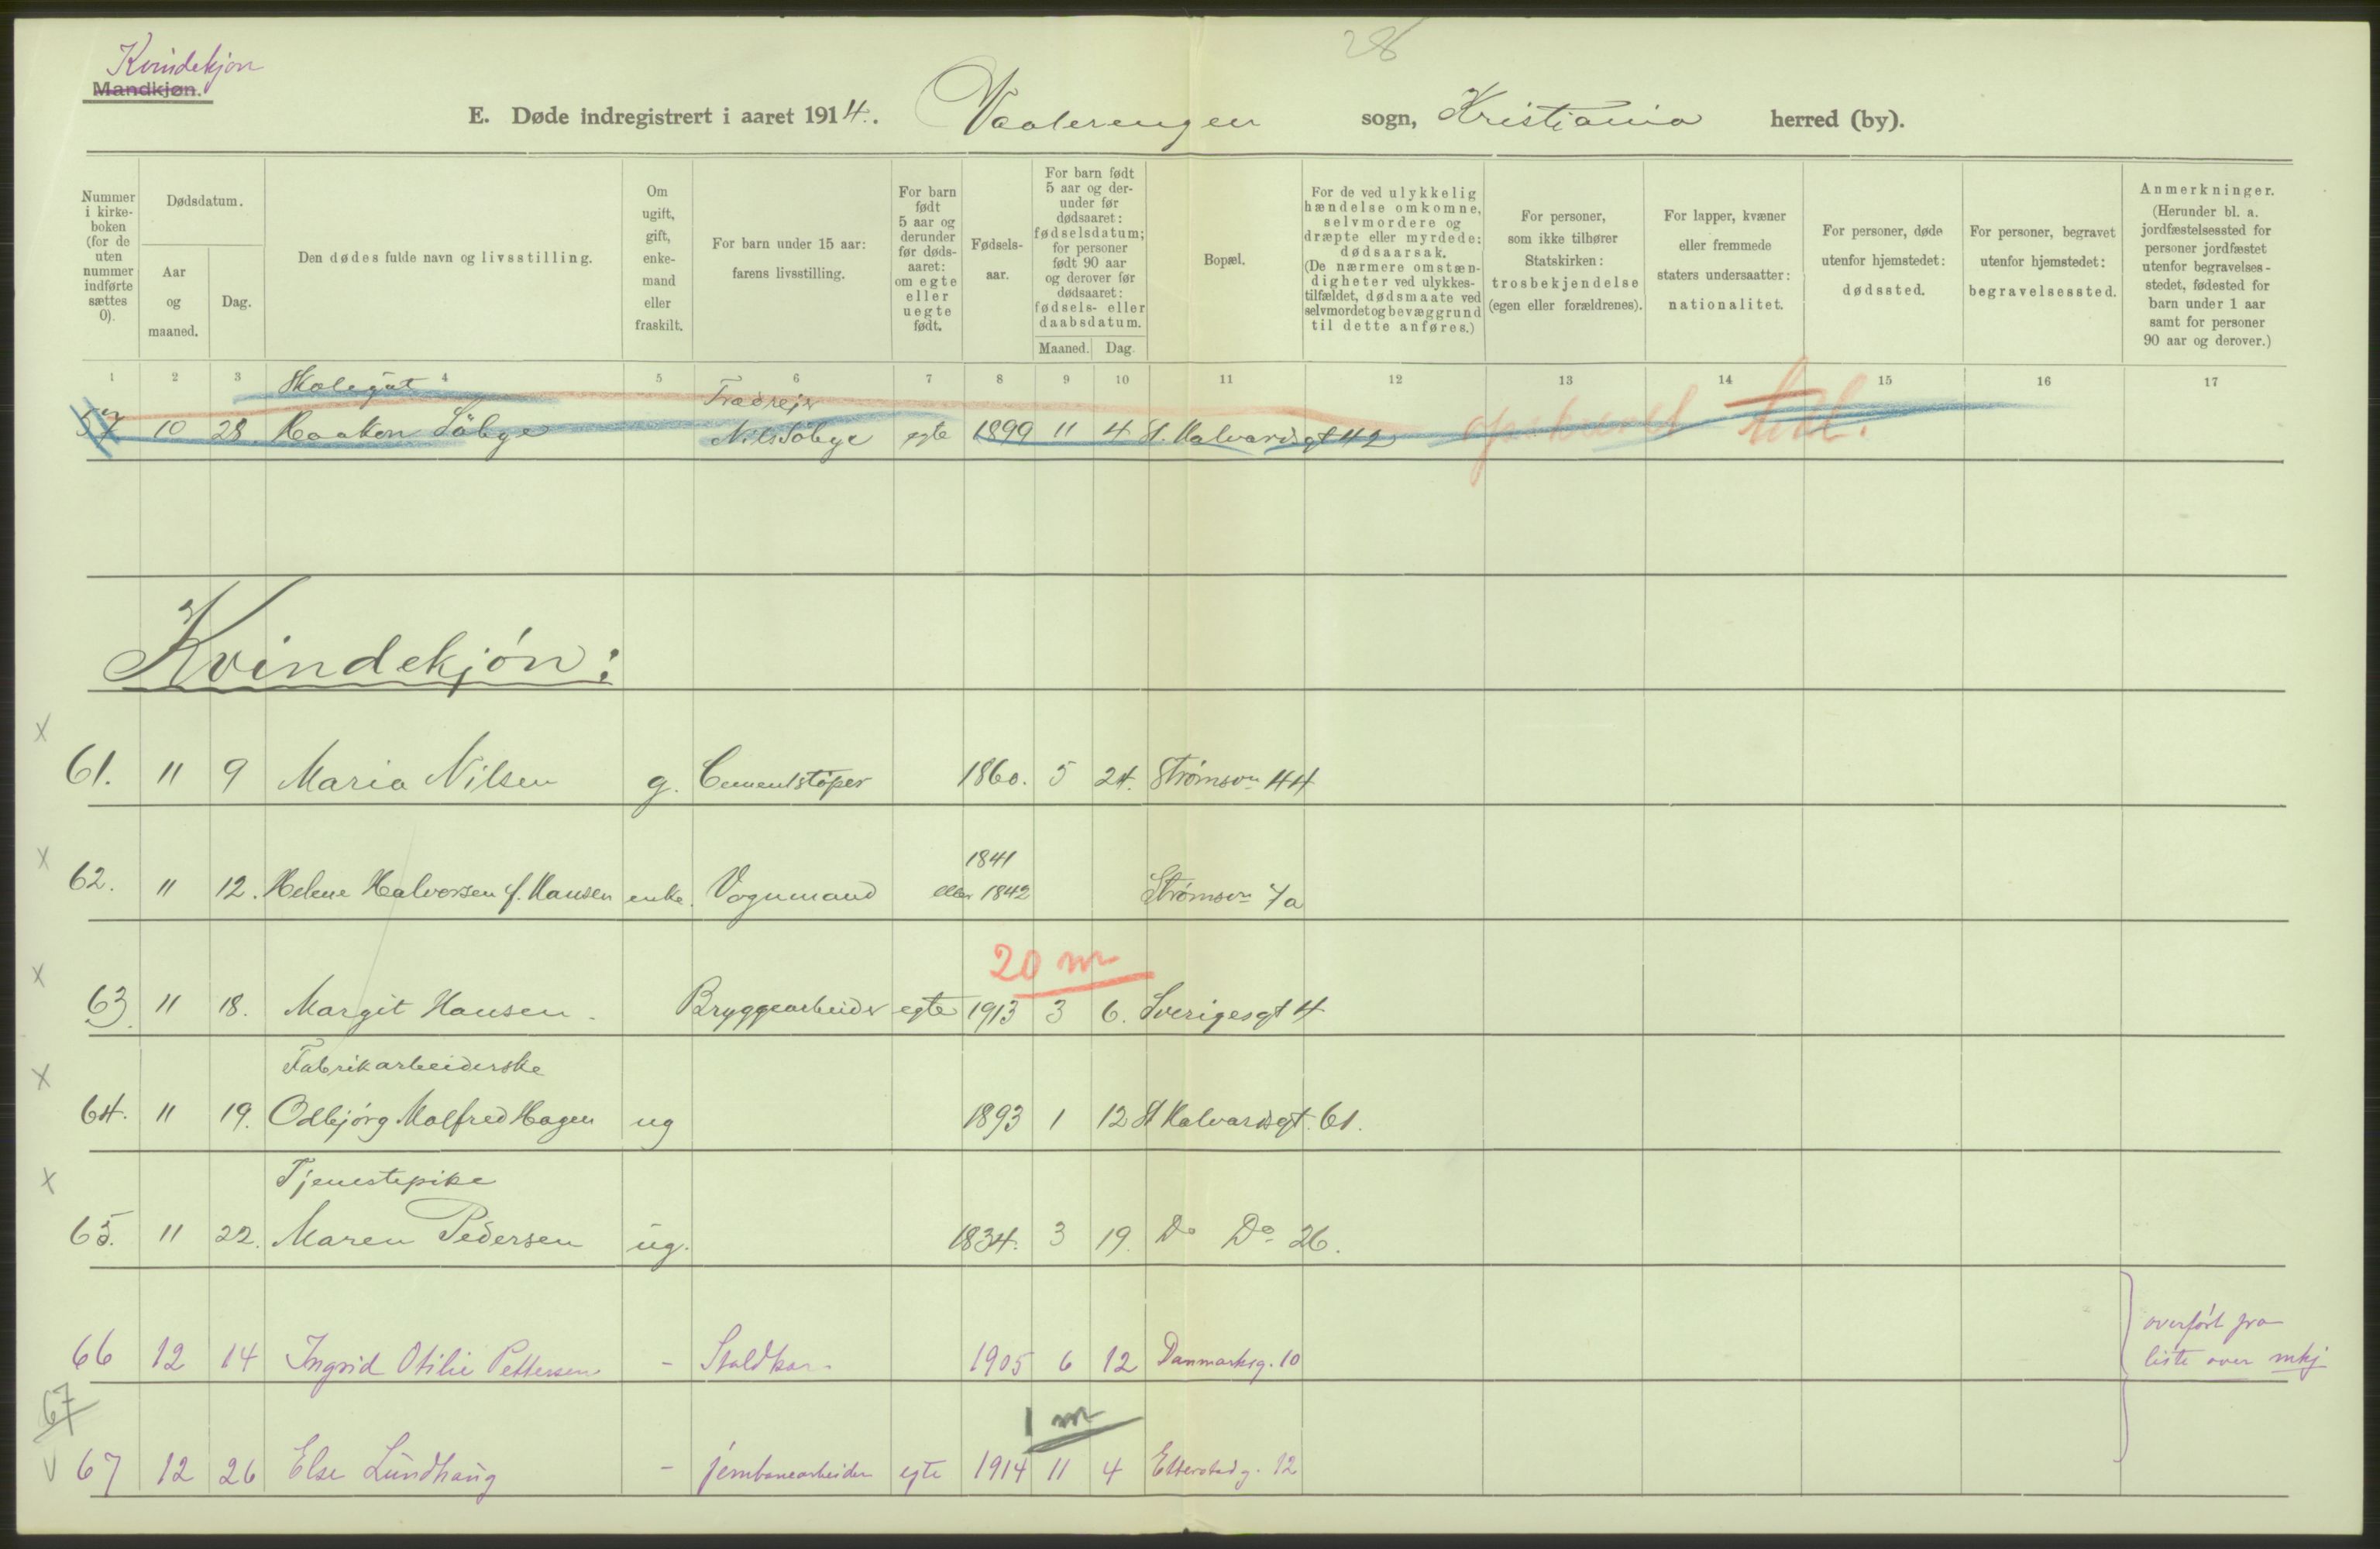 28
Kvindekjøn
Mandkjøn.
E. Døde indregistrert i aaret 1914. Vaalerengen sogn, Kristiania herred (by).
Nummer i kirke-boken (for de uten nummer indførte sættes 0).
Dødsdatum.
Aar og maaned.
Dag.
Den dødes fulde navn og livsstilling.
Om ugift, gift, enke-mand eller fraskilt.
For barn under 15 aar: farens livsstilling.
For barn født 5 aar og derunder før døds-aaret: om egte eller uegte født.
Fødsels-aar.
For barn født 5 aar og der-under før dødsaaret: fødselsdatum; for personer født 90 aar og derover før dødsaaret: fødsels- eller daabsdatum.
Maaned. Dag.
Bopæl.
For de ved ulykkelig hændelse omkomne, selvmordere og dræpte eller myrdede: dødsaarsak. (De nærmere omstæn-digheter ved ulykkes-tilfældet, dødsmaate ved selvmordet og bevæggrund til dette anføres.)
For personer, som ikke tilhører Statskirken: trosbekjendelse (egen eller forældrenes).
For lapper, kvæner eller fremmede staters undersaatter: nationalitet.
For personer, døde utenfor hjemstedet: dødssted.
For personer, begravet utenfor hjemstedet: begravelsessted.
Anmerkninger. (Herunder bl. a. jordfæstelsessted for personer jordfæstet utenfor begravelses-stedet, fødested for barn under 1 aar samt for personer 90 aar og derover.)
1 2 3 4 5 6 7 8 9 10 11 12 13 14 15 16 17
Skolegut
57 10 28 Haakon Sölye Nils Sölye egte 1899 11 4 St. Halvardsgt 42
Kvindekjón:
x
61. 11 9 Maria Nilsen g. Cementstøper 1860. 5 24. Strømsvn 44
x 1841
62. 11 12. Helene Halvorsen f. Hansen enke. Vognmand eller 1842 Strømsvn 7a
20 m
x
63. 11 18. Margit Hansen - Bryggearbeider egte 1913 3 6. Sverigesgt 4
Fabrikarbeiderske
x
64. 11 19. Odbjørg Malfred Hagen ug 1893 1 12 St Halvardsgt. 61.
Tjenestepike
x
65. 11 22. Maren Pedersen ug. 1834. 3 19. Do Do 26.
66 12 14 Ingrid Otilie Pettersen - Staldkar 1905 6 12 Danmarksg. 10
overført fra
liste over mkj
67
1 m
v 67 12 26 Else Lundhaug - jernbanearbeider egte 1914 11 4 Etterstadg. 12